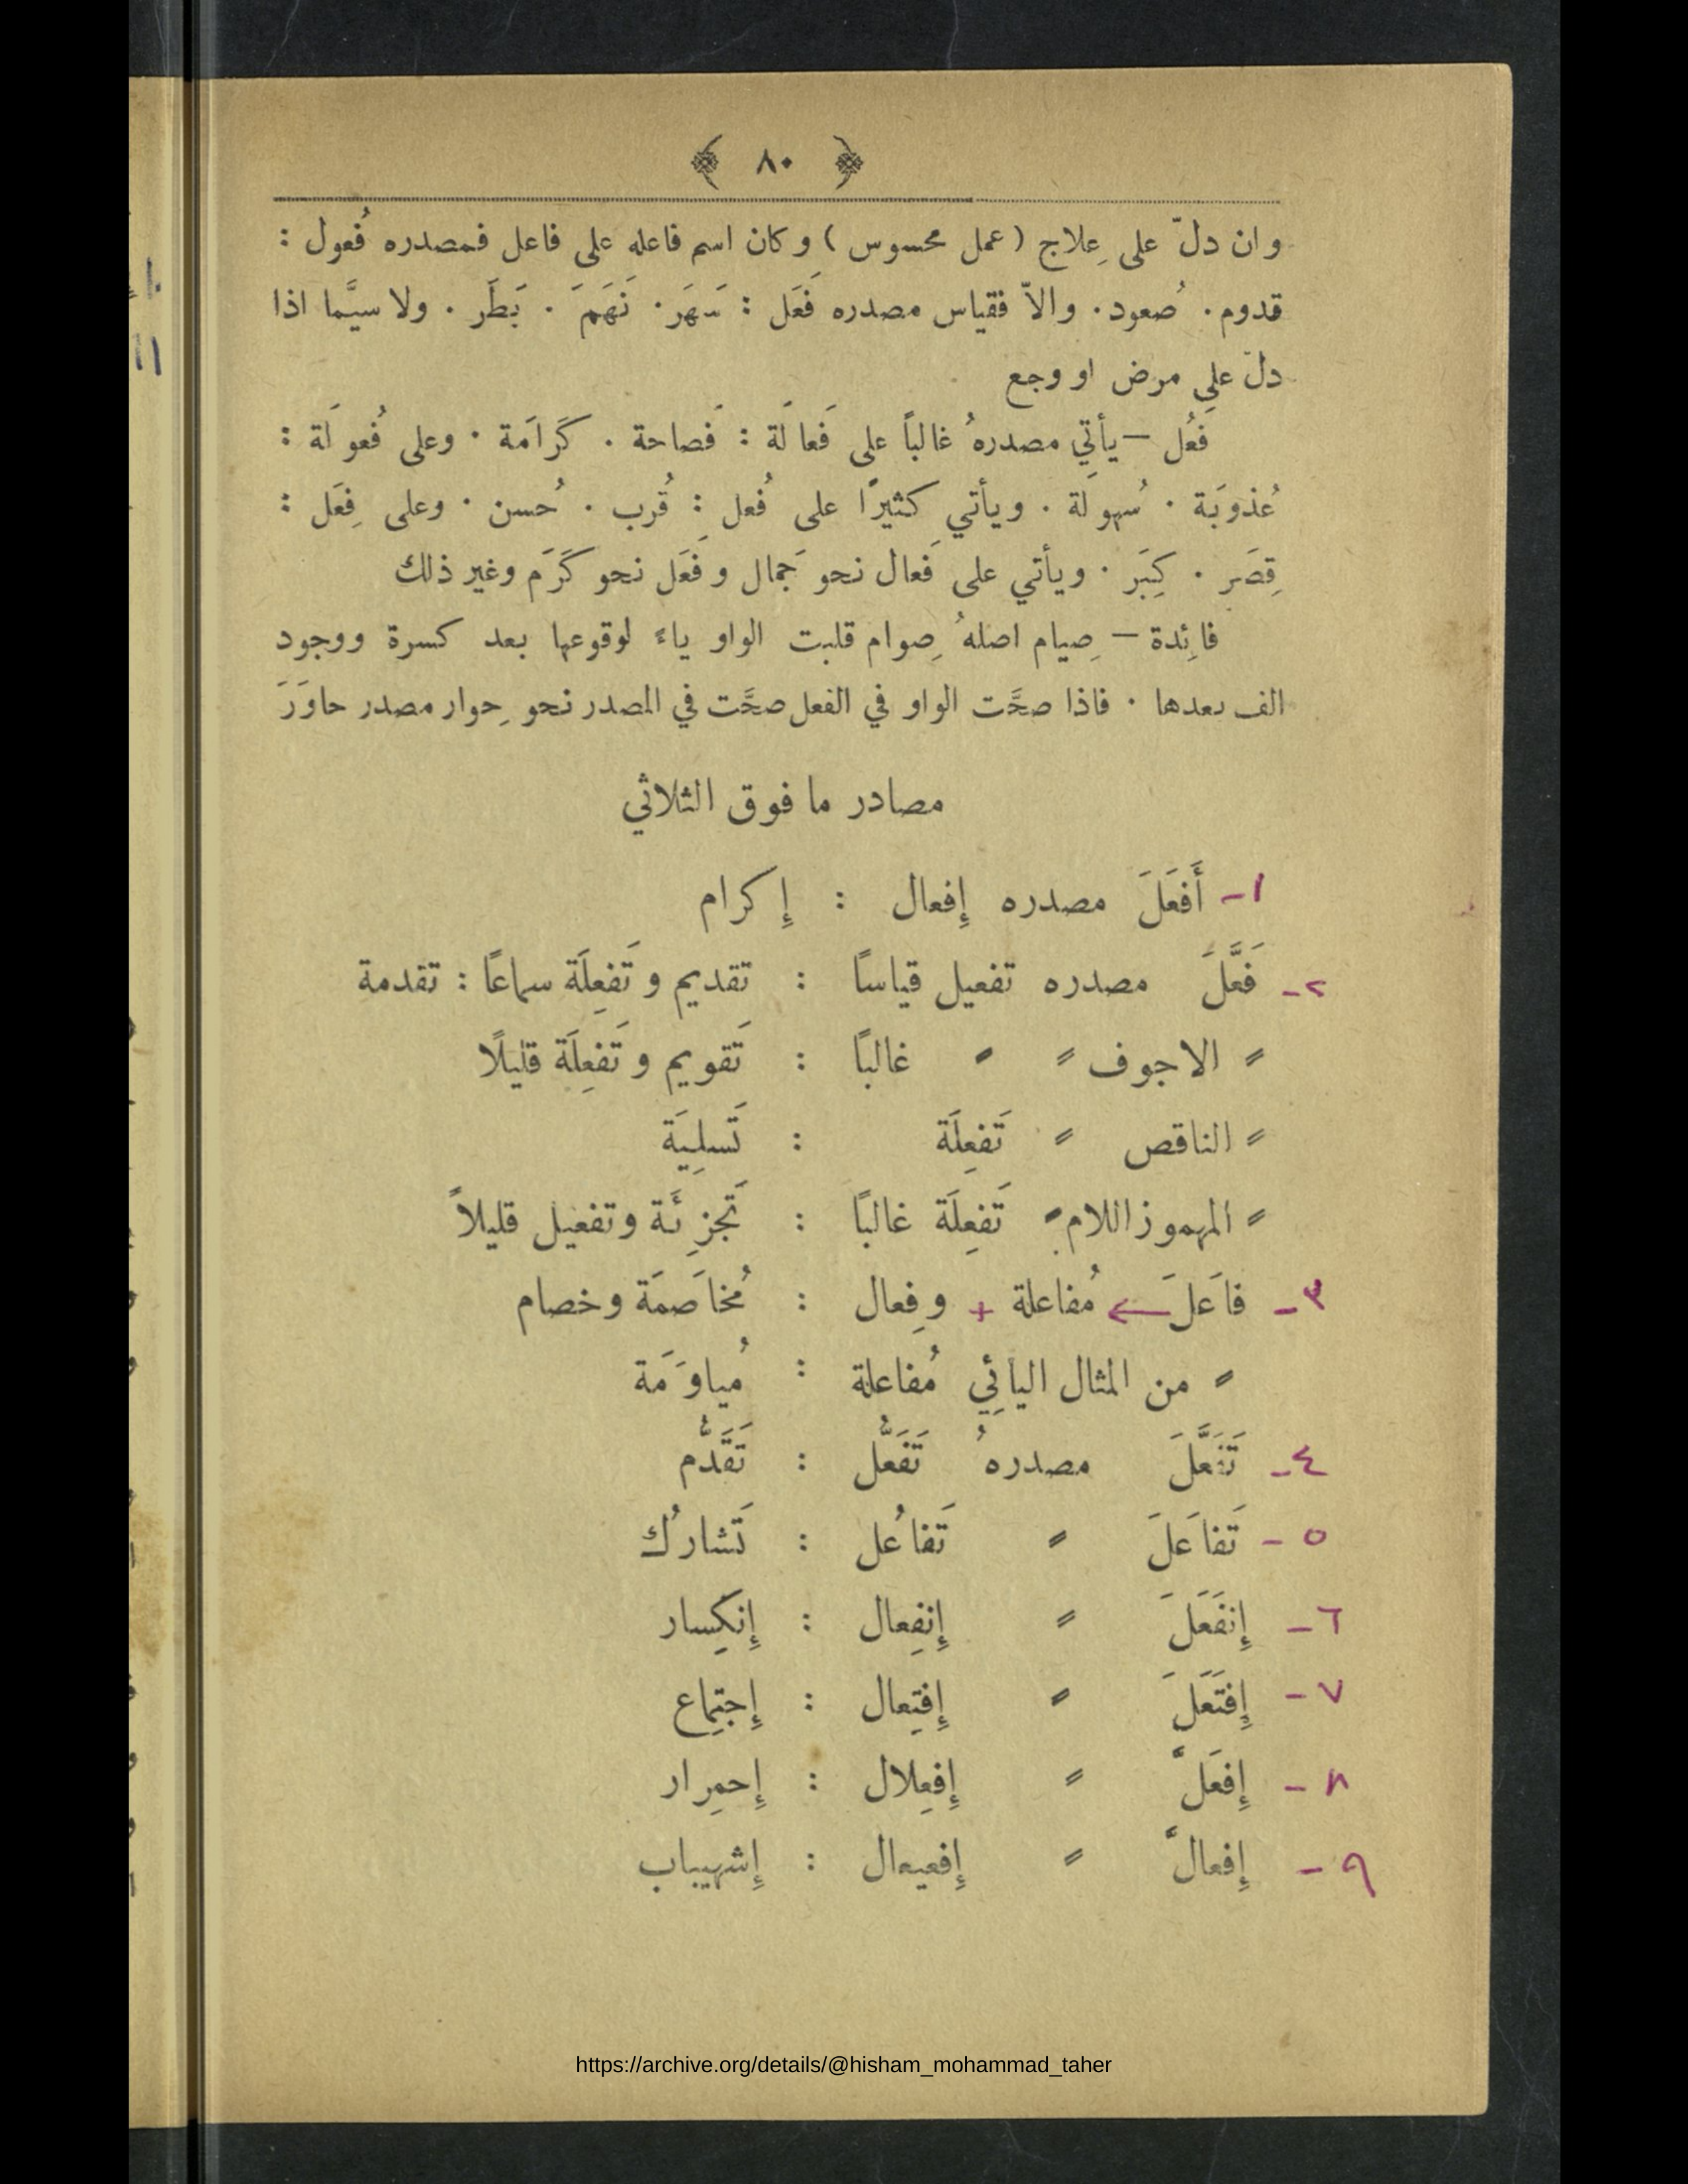 ﴿ ٨٠ ﴾
وان دلّ على عِلاج ( عمل محسوس ) وكان اسم فاعله على فاعل فمصدره فُعول :
قدوم. صُعود. والاّ فقياس مصدره فَعَل : سَهَر. نَهَمَ . بَطَر . ولا سيَّما اذا
دلّ على مرض او وجع
فَعُل — يأتي مصدرهُ غالباً على فَعالَة : فَصاحة . كَرَامَة . وعلى فُعولَة :
عُذوبَة . سُهولَة . ويأتي كثيرًا على فُعل : قُرب . حُسن . وعلى فِعَل :
قِصَر . كِبَر . ويأتي على فَعال نحو جَمال وفَعَل نحو كَرَم وغير ذلك
فائِدة — صِيام اصلهُ صِوام قلبت الواو ياءً لوقوعها بعد كسرة ووجود
الف بعدها . فاذا صحَّت الواو في الفعل صحَّت في المصدر نحو حِوار مصدر حاوَرَ
مصادر ما فوق الثلاثي
١- أَفعَلَ مصدره إِفعال : إِكرام
٢- فَعَّلَ مصدره تفعيل قياسًا : تقديم وتَفعِلَة سماعًا : تقدمة
〃 الاجوف 〃 〃 غالبًا : تَقويم وتَفعِلَة قليلًا
〃 الناقص 〃 تَفعِلَة : تَسلِيَة
〃 المهموز اللام 〃 تَفعِلَة غالبًا : تَجزِئَة وتفعيل قليلاً
٣- فاعَلَ ← مُفاعلة + وفِعال : مُخاصَمَة وخصام
〃 من المثال اليائِي مُفاعلة : مُياوَمَة
٤- تَفَعَّلَ مصدرهُ تَفَعُّل : تَقَدُّم
٥- تَفاعَلَ 〃 تَفاعُل : تَشارُك
٦- إِنفَعَلَ 〃 إِنفِعال : إِنكِسار
٧- إِفتَعَلَ 〃 إِفتِعال : إِجتِماع
٨- إِفعَلَّ 〃 إِفعِلال : إِحمِرار
٩- إِفعالَّ 〃 إِفعيعال : إِشهيباب
https://archive.org/details/@hisham_mohammad_taher